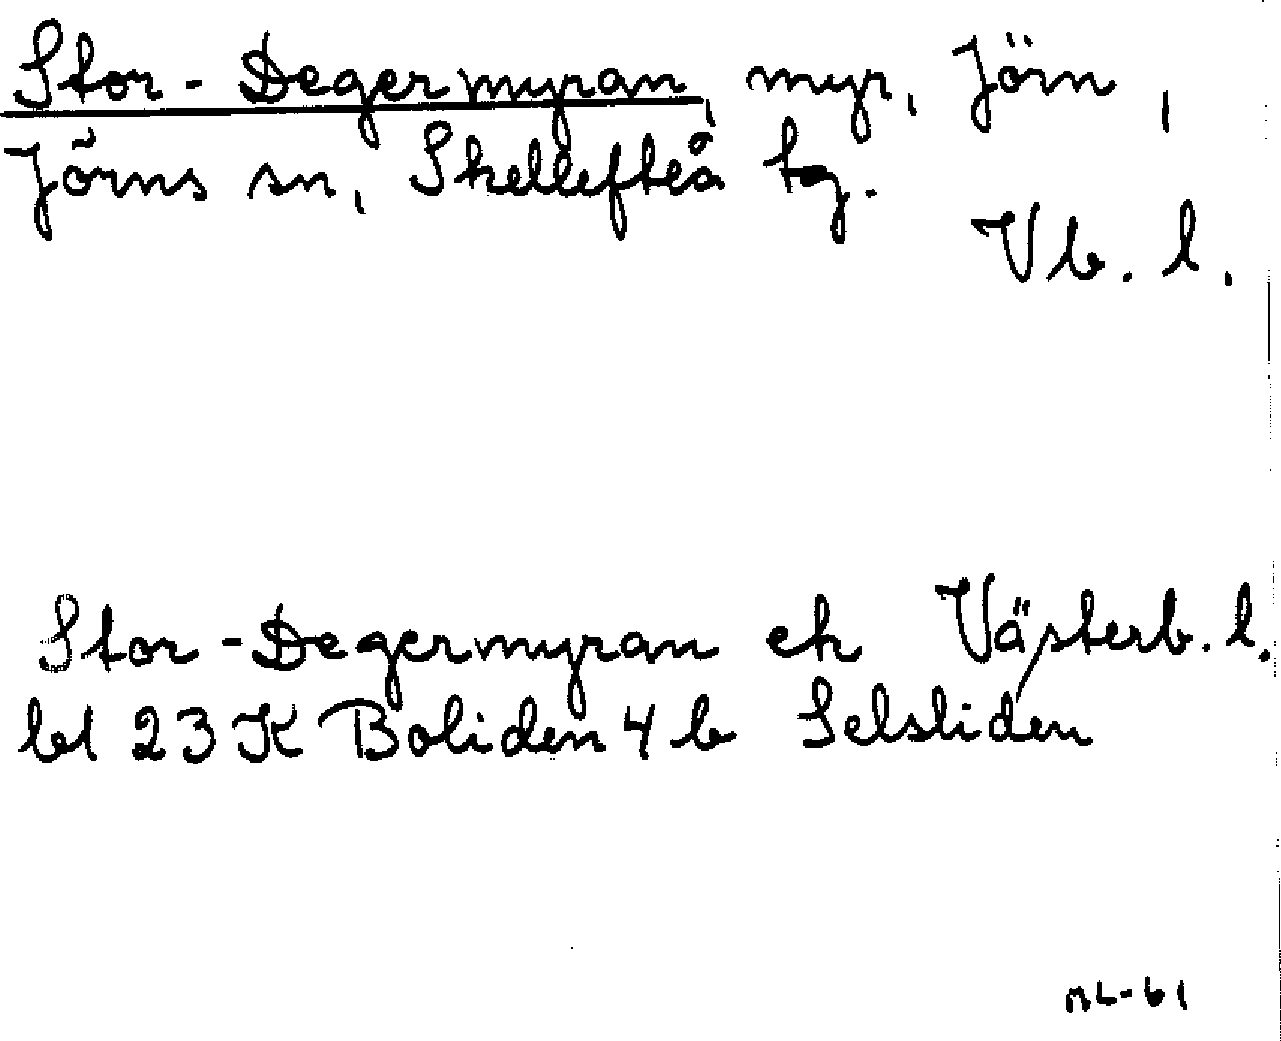 Stor-Degermyran, myr, Jörn,
Jörns sn, Skellefteå tg.
Vb. l.
Stor-Degermyran ek Västerb. l.
bl 23 K Boliden 4 b Selsliden
ML-61